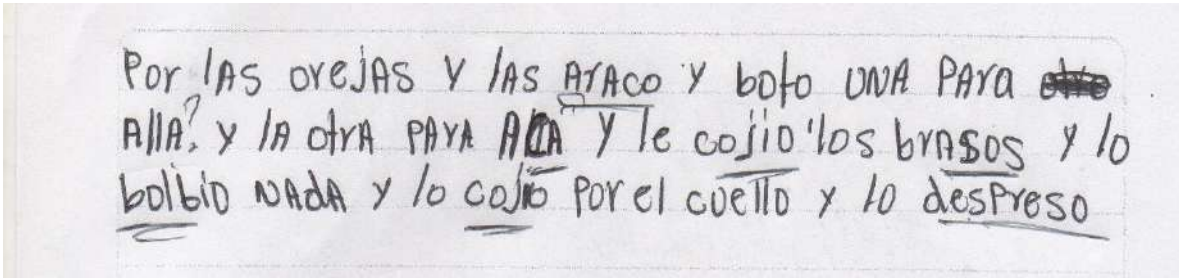 Por lAS orejAS y lAS ArAco y boto UNA PAra
AllA? y lA otrA PArA ACA y le cojio los brAsos y lo
bolbio NAdA y lo cojio Por el cuello y lo despreso